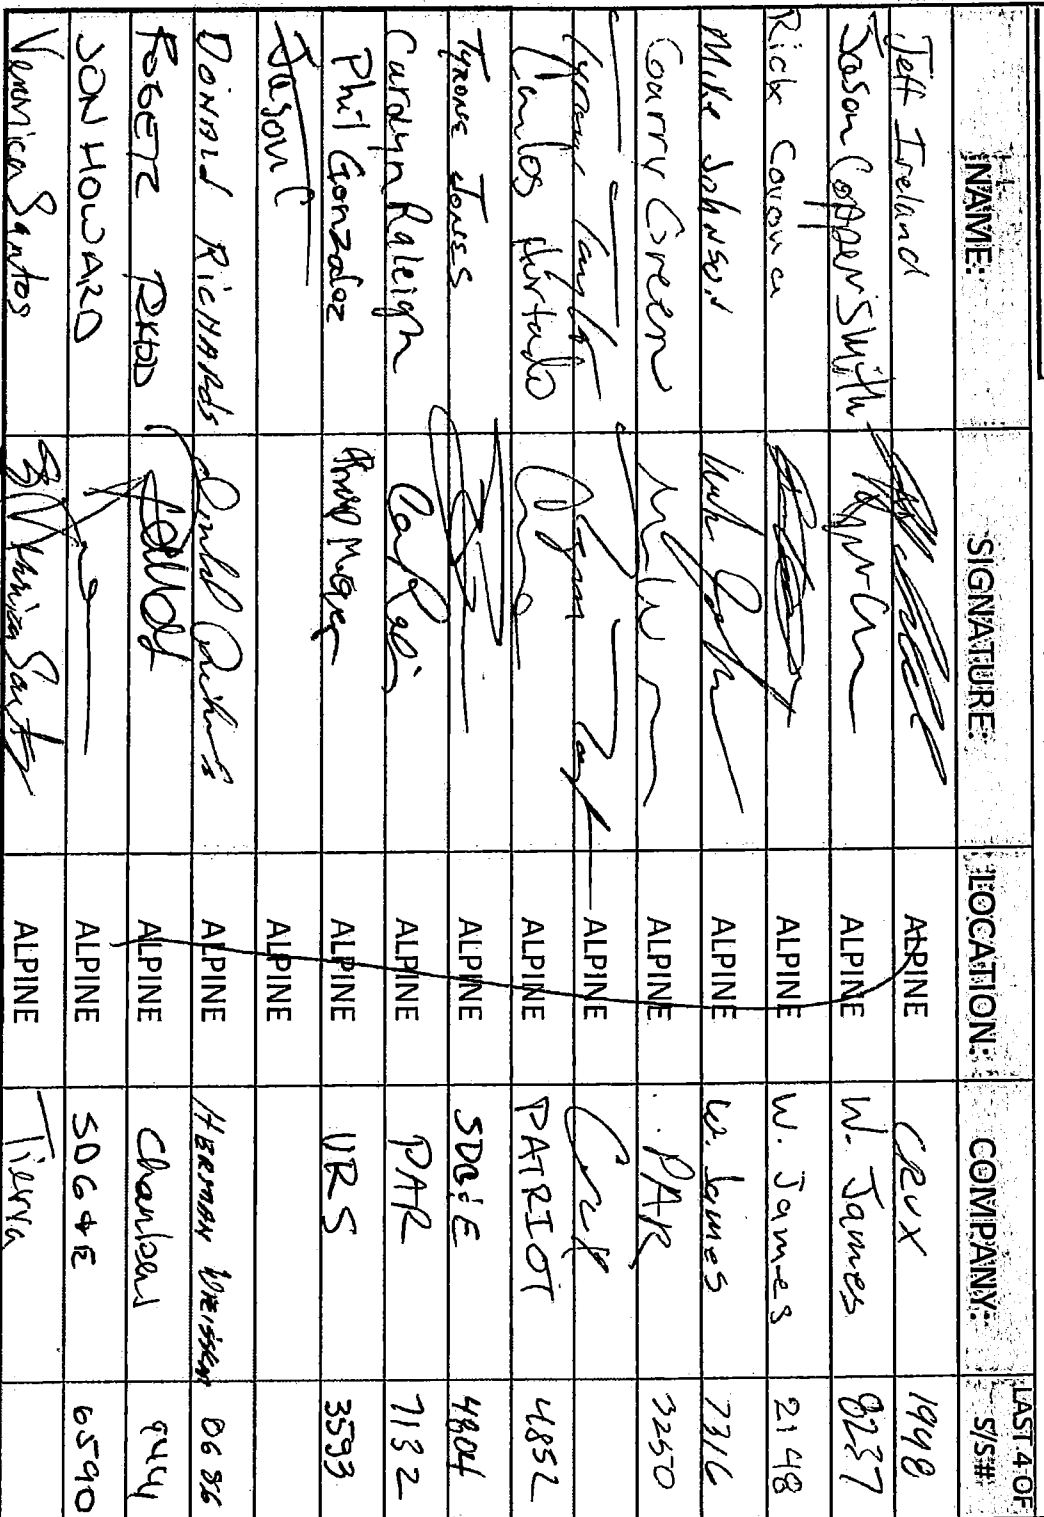 NAME: SIGNATURE: LOCATION: COMPANY: LAST 4 OF S/S#
Jeff Ireland ALPINE CRUX 1998
Jason Coppersmith ALPINE W. James 8237
Rick ALPINE W. James 2148
Mike Johnson ALPINE W. James 7316
Garry Green ALPINE PAR 3250
ALPINE
Carlos Hurtado ALPINE PATRIOT 4852
Tyrone Jones ALPINE SDG&E 4804
Carolyn Raleigh ALPINE PAR 7132
Phil Gonzalez ALPINE URS 3593
Jason C ALPINE
Donald Richards Donald Richards ALPINE HERMAN WEISSKER 0686
ALPINE 9444
JON HOWARD ALPINE SDG&E 6590
Veronica Santos Veronica Santos ALPINE Tierra